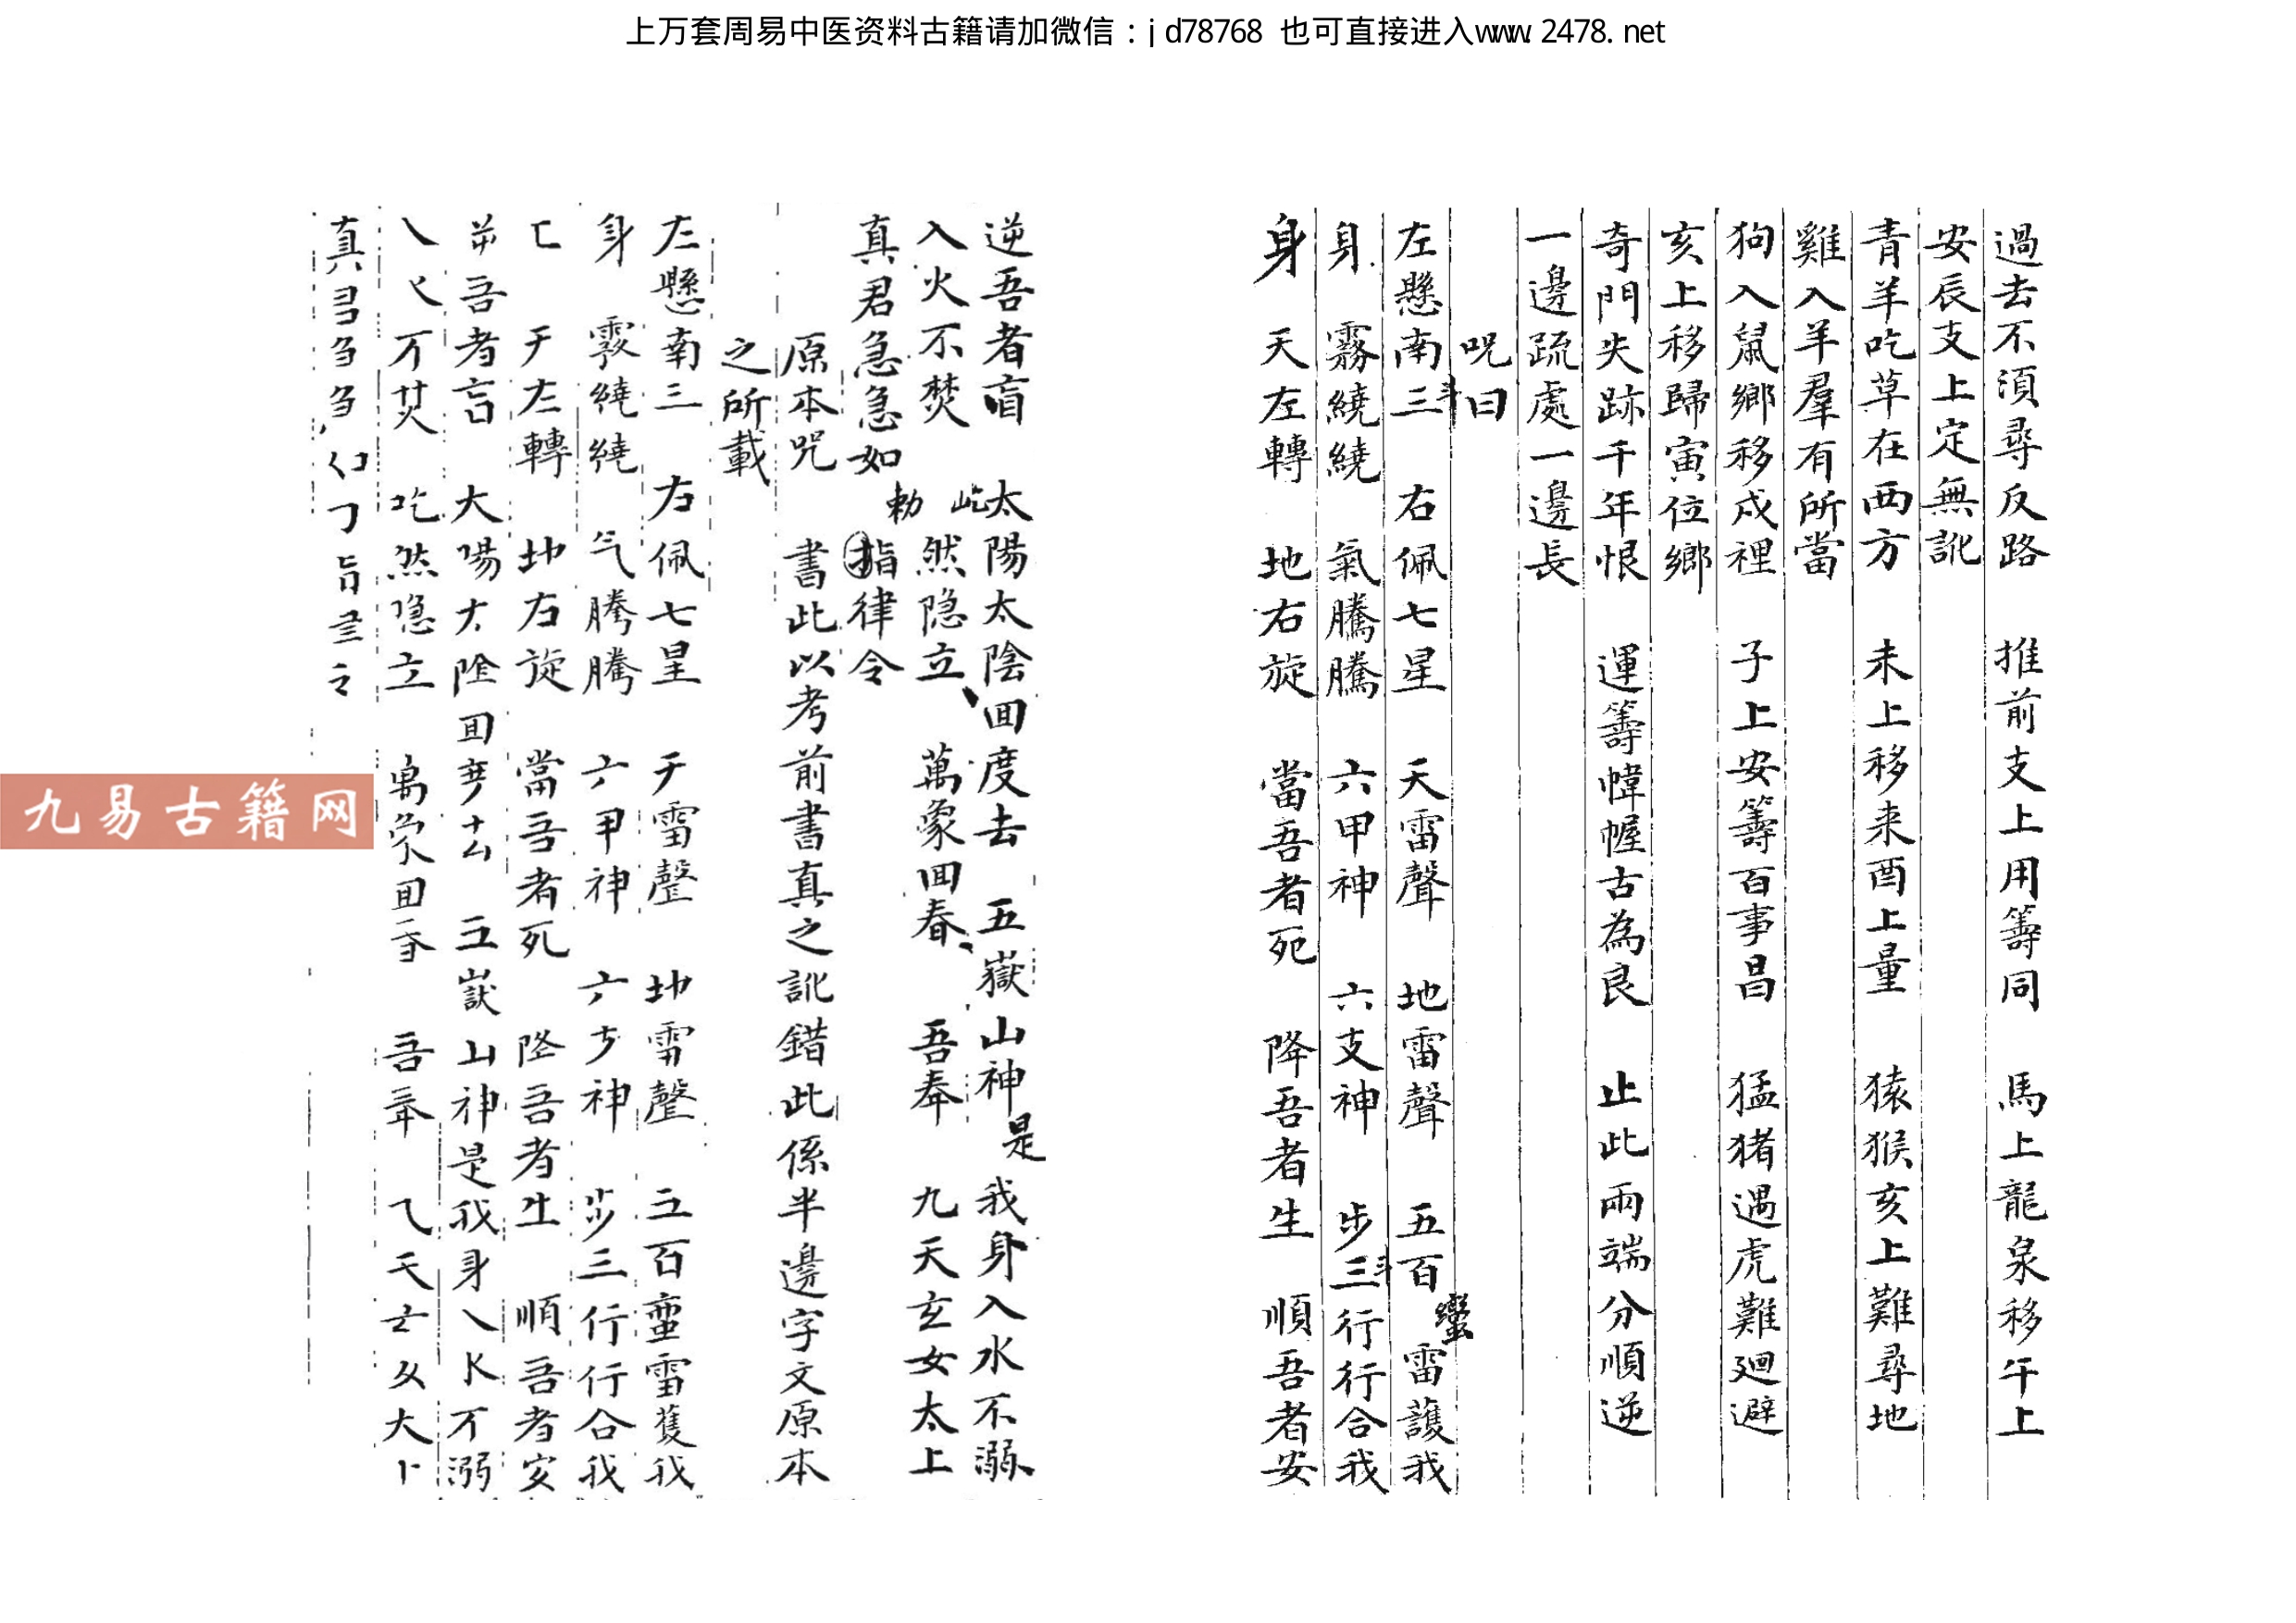 上万套周易中医资料古籍请加微信：jd78768 也可直接进入www.2478.net
過去不須尋反路 推前支上用籌同 馬上龍泉移午上
安辰支上定無訛
青羊吃草在西方 未上移来酉上量 猿猴亥上難尋地
雞入羊羣有所當
狗入鼠鄉移戍裡 子上安籌百事昌 猛猪遇虎難廻避
亥上移歸寅位鄉
奇門失跡千年恨 運籌幃幄古為良 止此兩端分順逆
一邊疏處一邊長
咒曰
左懸南三斗 右佩七星 天雷聲 地雷聲 五百蠻雷護我
身 霧繞繞 氣騰騰 六甲神 六支神 步三斗行行合我
身 天左轉 地右旋 當吾者死 降吾者生 順吾者安
逆吾者盲 太陽太陰囬度去 五嶽山神是我身入水不溺
入火不焚 屹然隐立 萬象囬春 吾奉 九天玄女太上
真君急急如勅指律令
原本咒 書此以考前書真之訛錯此係半邊字文原本
之所載
懸南三 佩七星 雷 百雷
身 繞繞 騰騰 甲神 神 三行行合
轉 旋 當吾者死 吾者生 順吾者
吾者 大 山神是 身 溺
然隐立 吾 大
真
九易古籍网